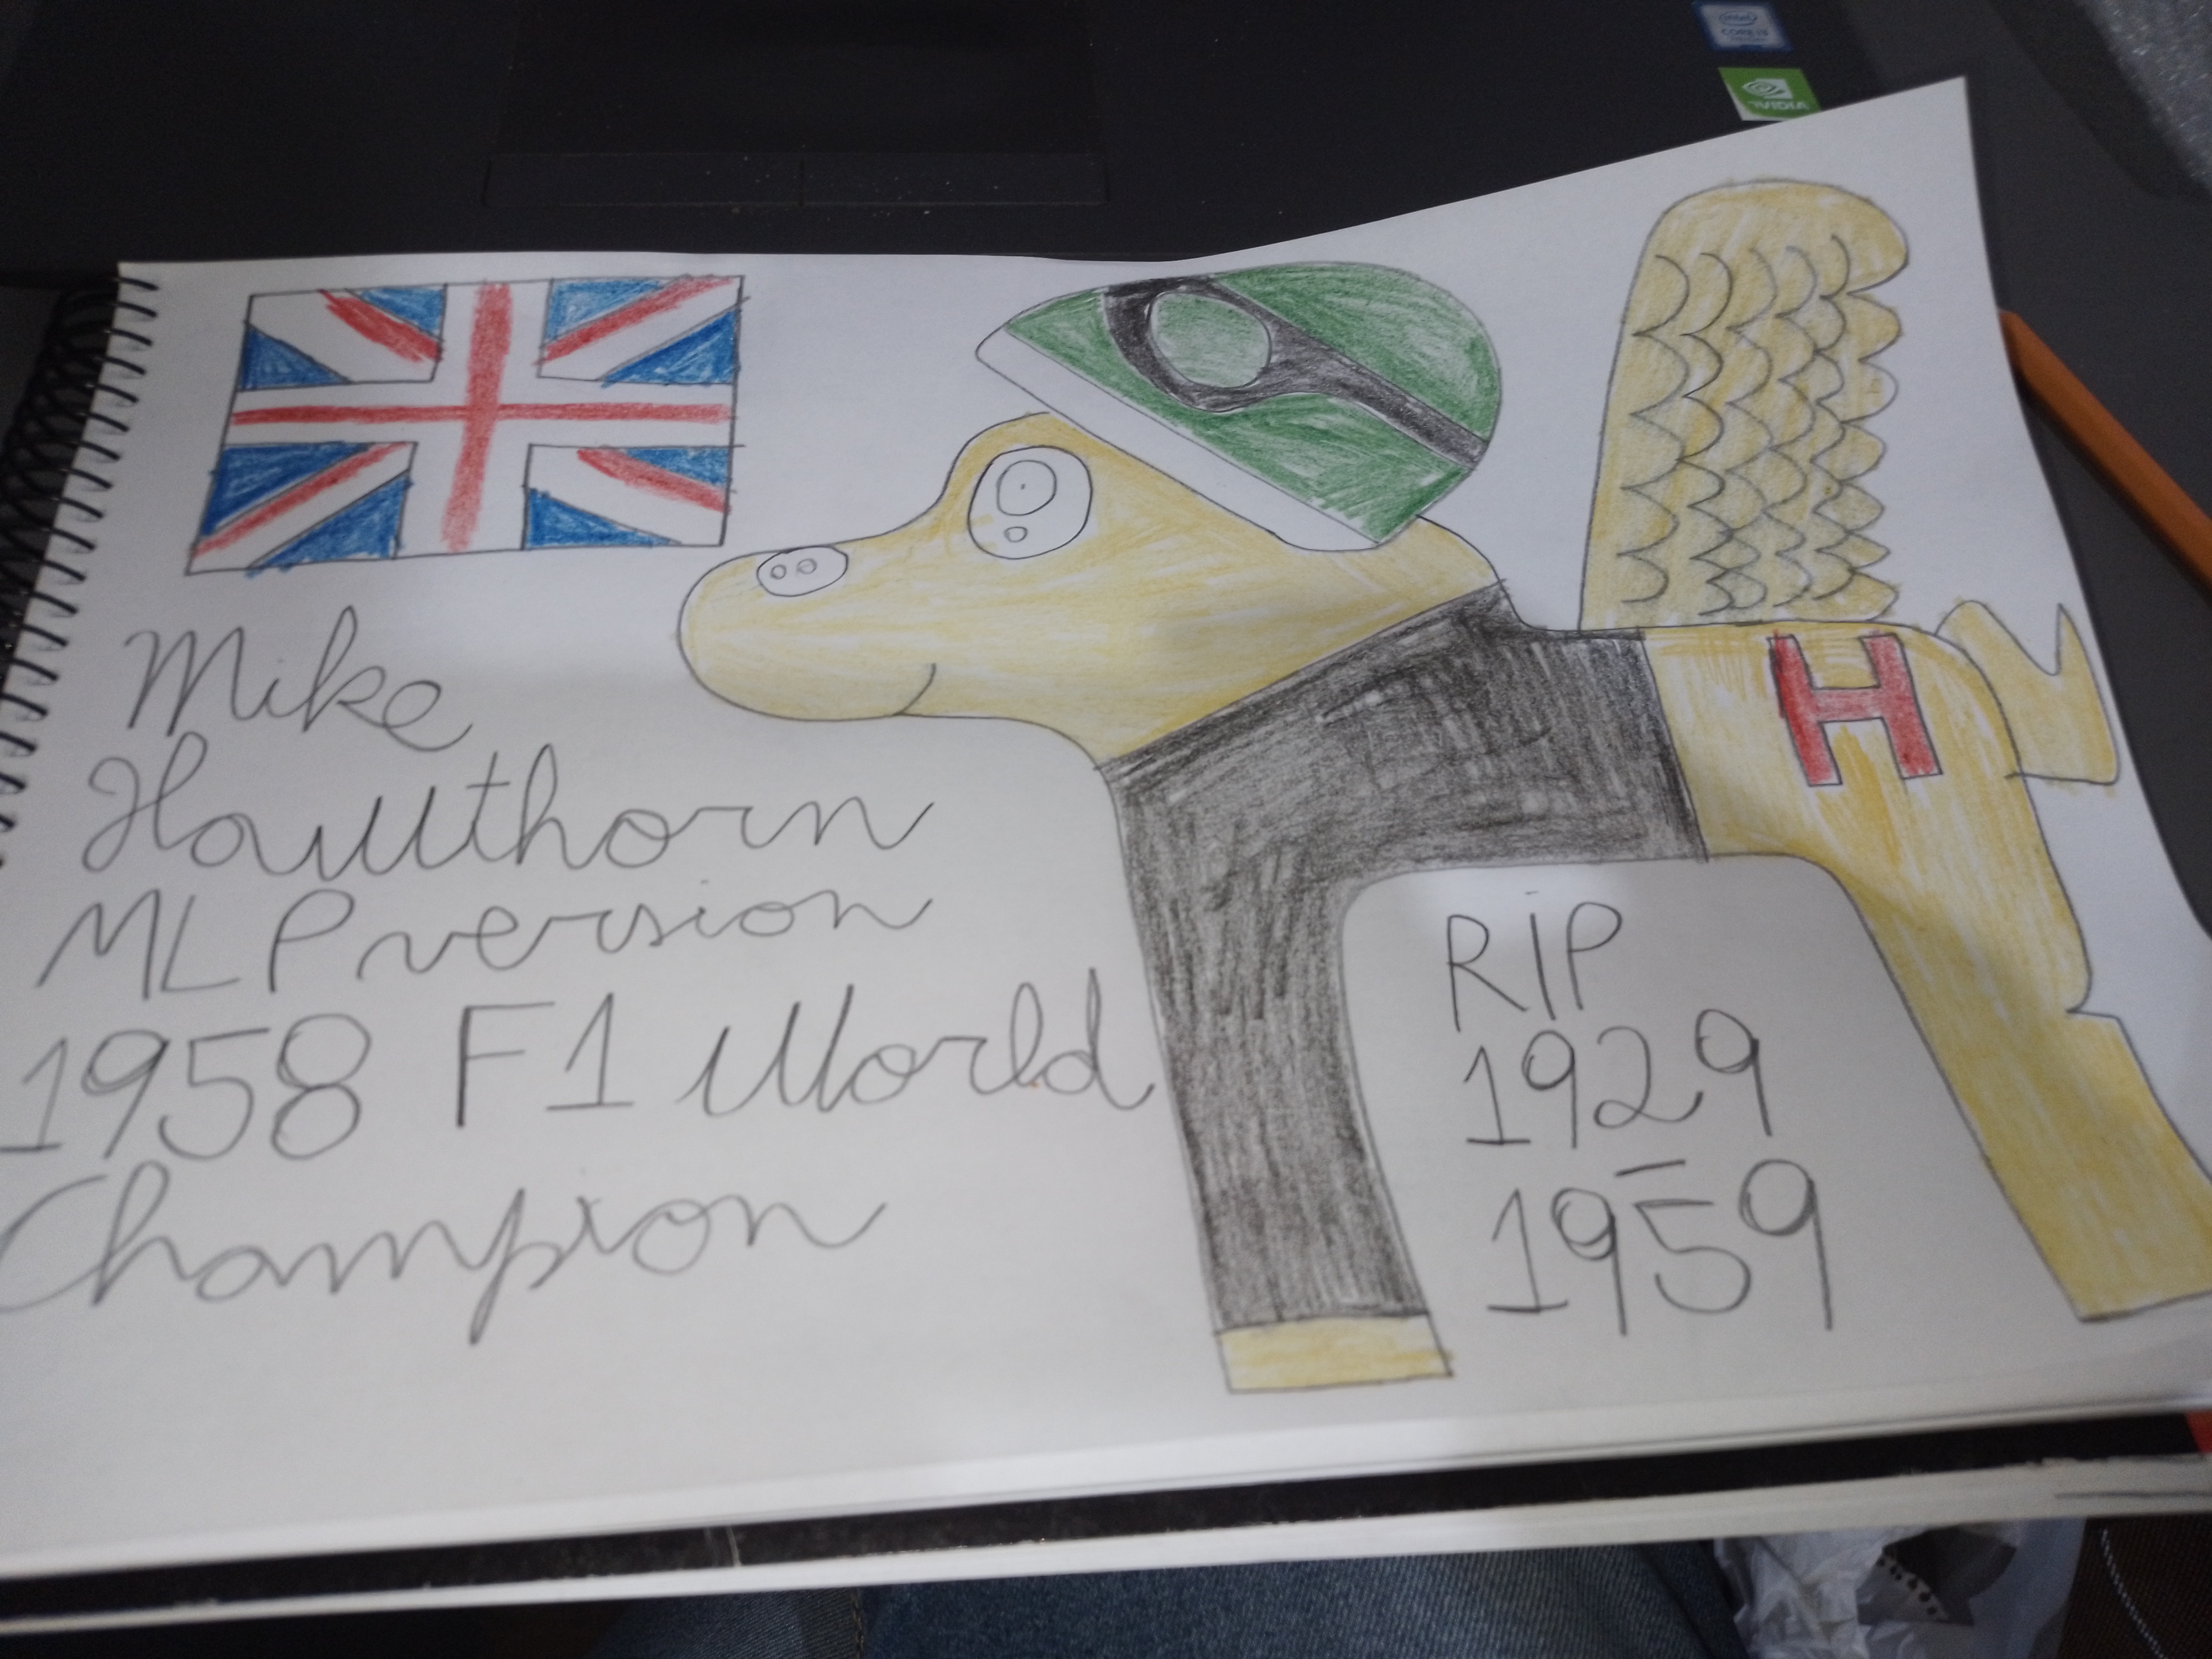 intel
CORE i7
NVIDIA
Mike
Hawthorn
MLP version
1958 F1 World
Champion
H
RIP
1929
-
1959